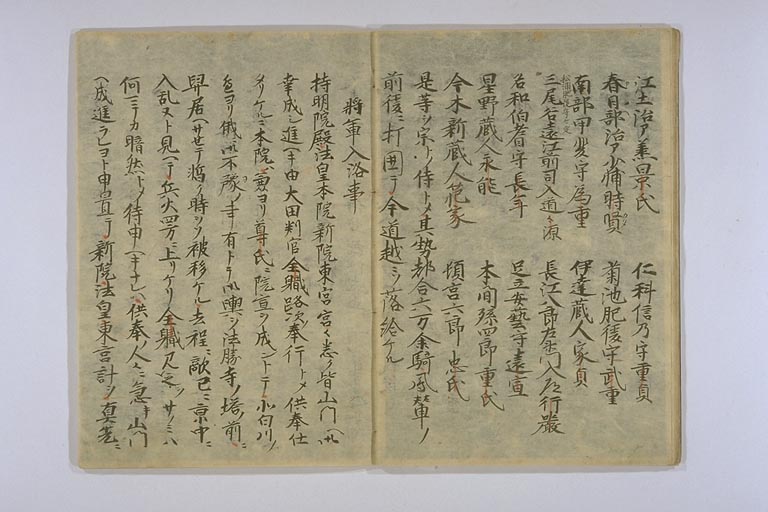 江土治ア兼景氏 仁科信乃守重貞
春日部治ア少輔時賢 菊池肥後守武重
南部甲斐守為重 伊達蔵人家貞
三尾谷遠江前司入道々源 長江八郎左衛門入道行嚴
名和伯耆守長年 足立安藝守遠宣
星野蔵人永能 本間孫四郎重氏
今木新蔵人範家 頓宮六郎忠氏
是等ヲ宗トノ侍トメ其勢都合六万余騎鳳輦ノ
前後ニ打囲テ今道越ヨリ落給ケル
将軍入洛事
持明院殿法皇本院新院東宮宮々悉ク皆山門ヘ御
幸成シ進ヘキ由大田判官全職路次ノ奉行トメ供奉仕
メリケルニ本院ハ兼ヨリ尊氏ニ院宣ヲ成シトテ北白川ノ
辺ヨリ俄ニ御不豫ノ事有トテ御輿ヲ法勝寺ノ塔ノ前ニ
舁居ヘサセテ態ト時ヲソ被移ケル去程ニ敵已ニ京中ニ
入乱ヌト見ヘテ兵火四方ニ上リケリ全職乃サノミハ
何ニテカ暗然トノ待申ヘキナレハ供奉ノ人々ニ急キ山門
ヘ成進ラセヨト申置テ新院法皇東宮計ヲ具進ニ